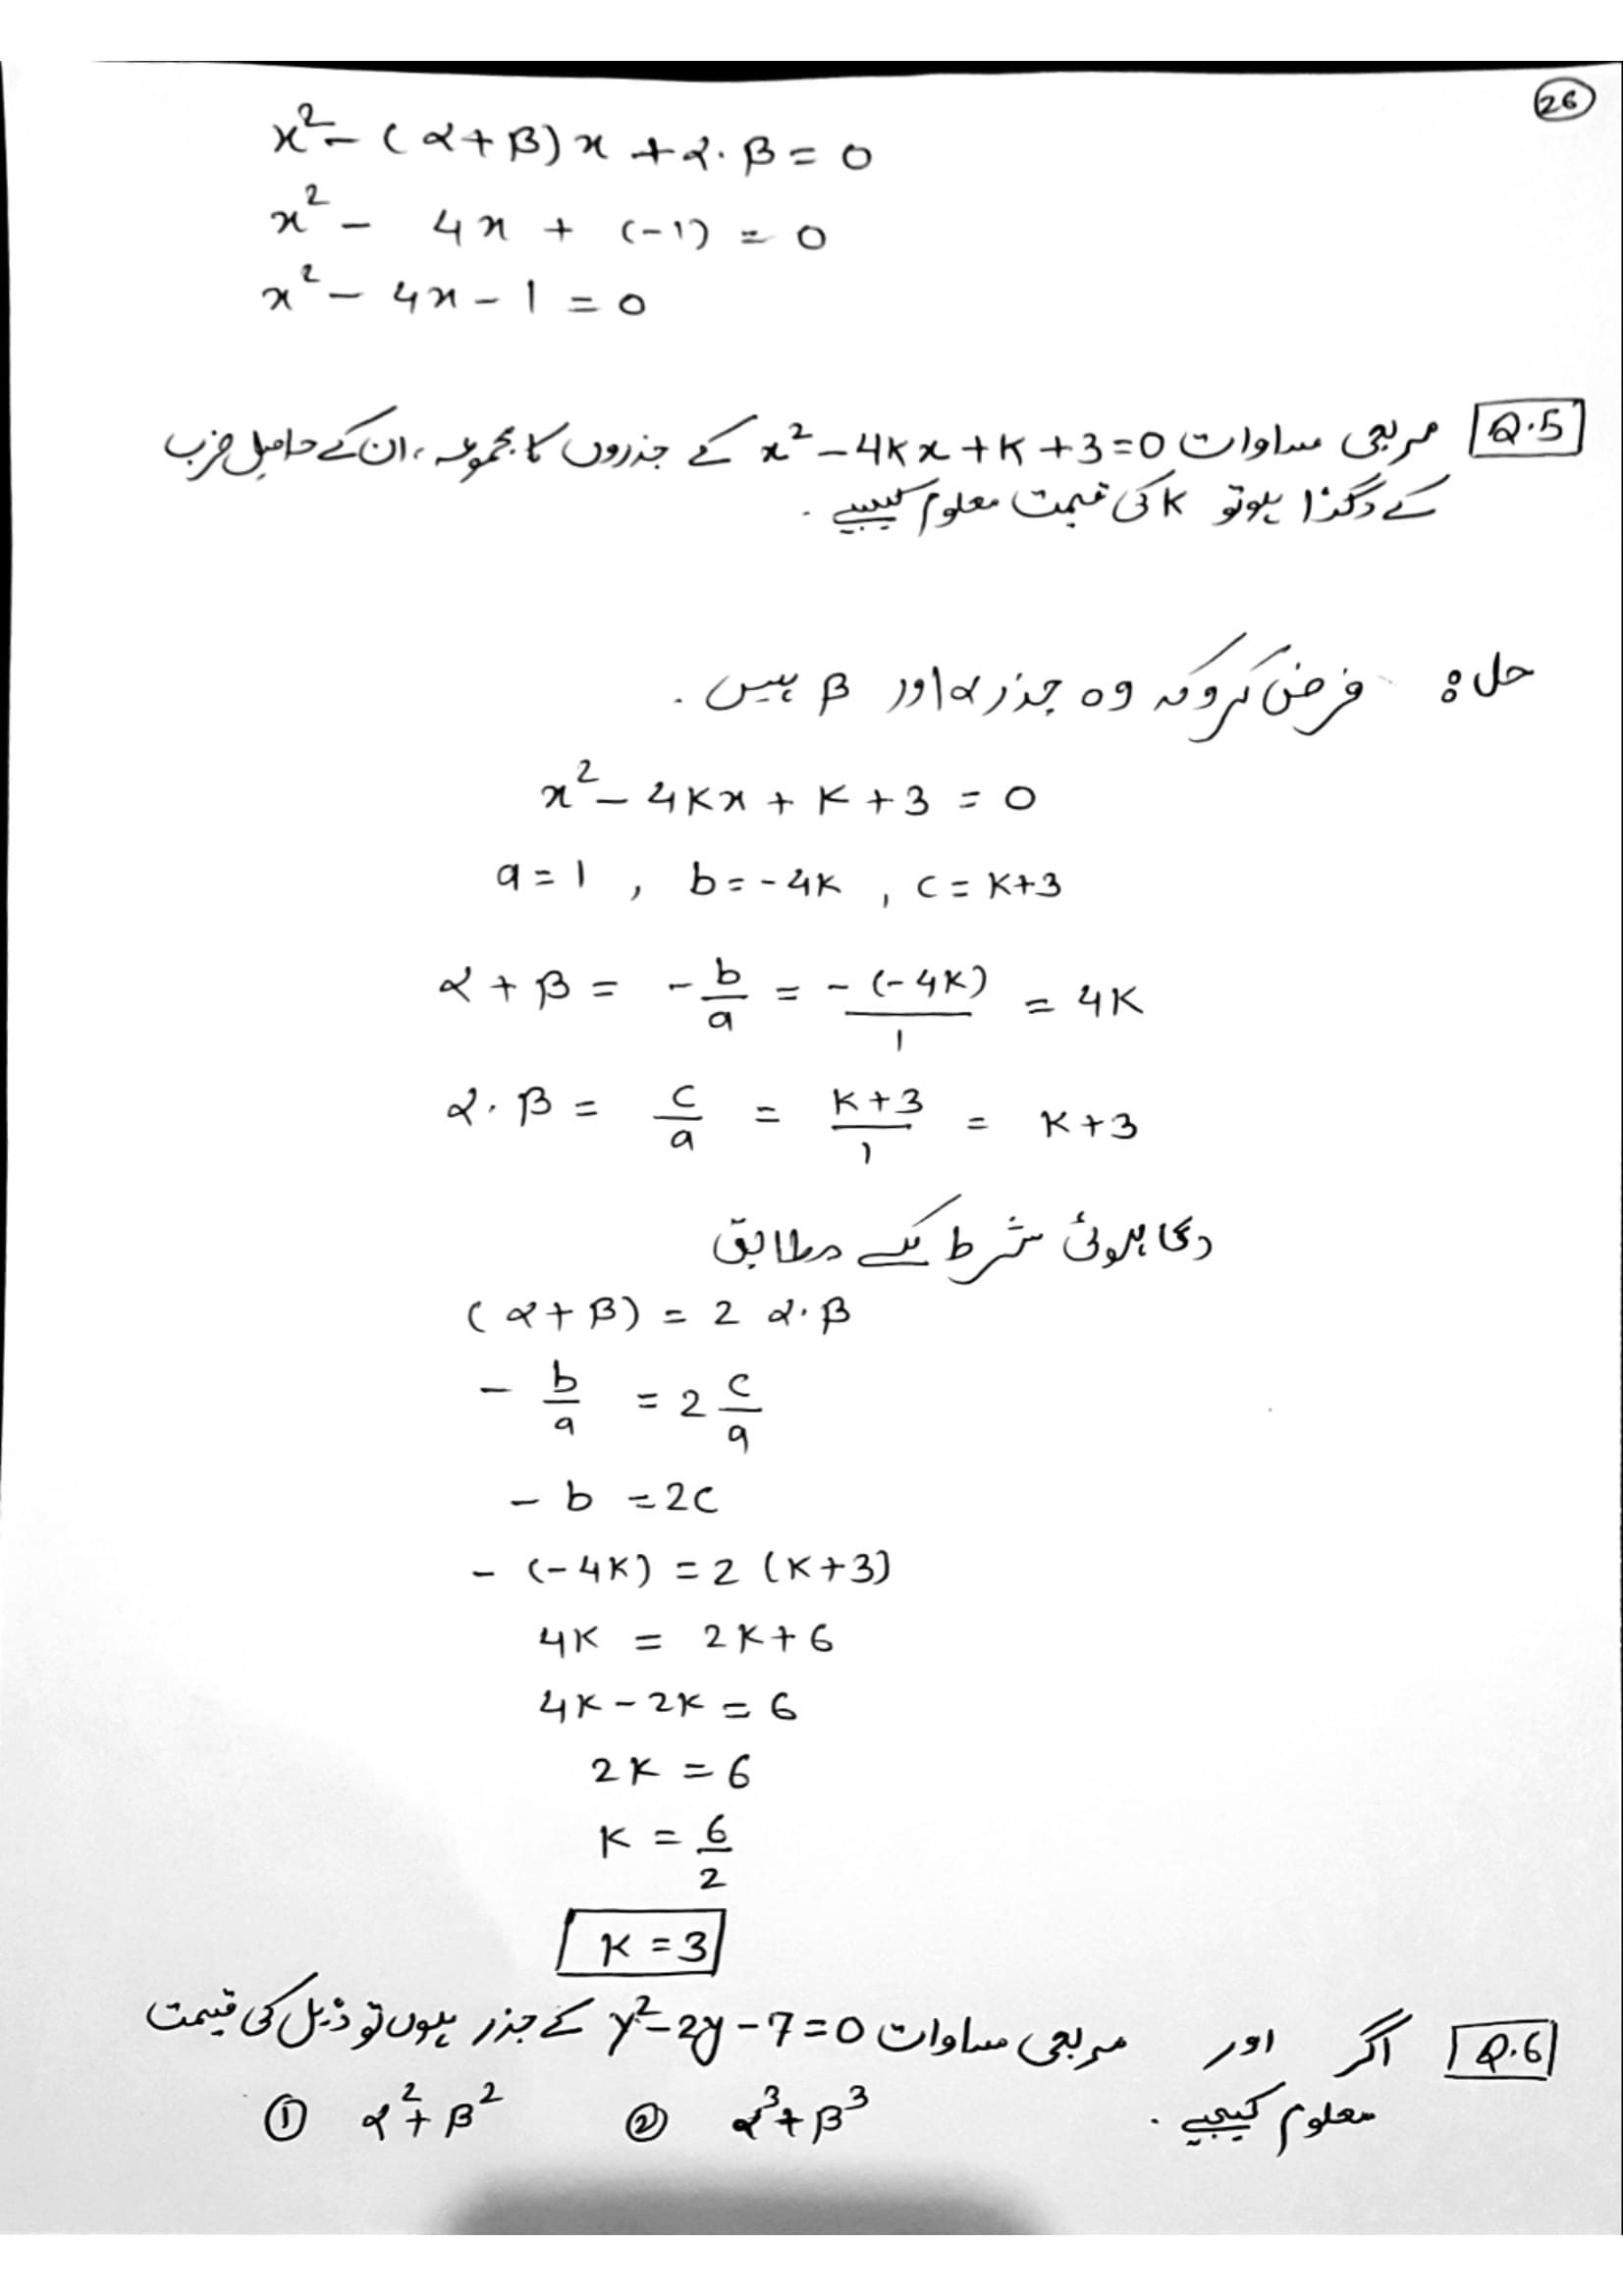 26
x² - (α + β) x + α . β = 0
x² - 4x + (-1) = 0
x² - 4x - 1 = 0
Q.5 مربعی مساوات x² - 4kx + k + 3 = 0 کے جذروں کا مجموعہ، ان کے حاصل ضرب
کے دگنا ہو تو k کی قیمت معلوم کیجیے .
حل : فرض کرو کہ وہ جذر α اور β ہیں .
x² - 4kx + k + 3 = 0
a = 1 , b = -4k , c = k+3
α + β = - b/a = - (-4k)/1 = 4k
α . β = c/a = k+3/1 = k+3
دی ہوئی شرط کے مطابق
(α + β) = 2 α . β
- b/a = 2 c/a
- b = 2c
- (-4k) = 2 (k+3)
4k = 2k + 6
4k - 2k = 6
2k = 6
k = 6/2
k = 3
Q.6 اگر اور مربعی مساوات y² - 2y - 7 = 0 کے جذر ہوں تو ذیل کی قیمت
معلوم کیجیے .
① α² + β² ② α³ + β³